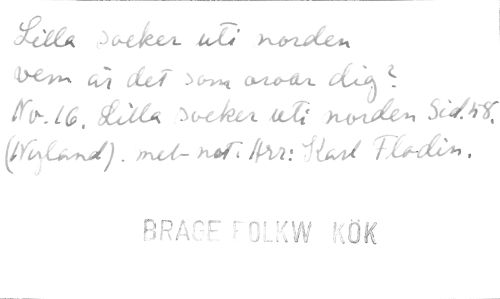 Lilla socker uti norden
vem är det som oroar dig?
No. 16. Lilla socker uti norden Sid. 58.
(Nyland). met not. Arr: Karl Flodin.
BRAGE FOLKW KÖK